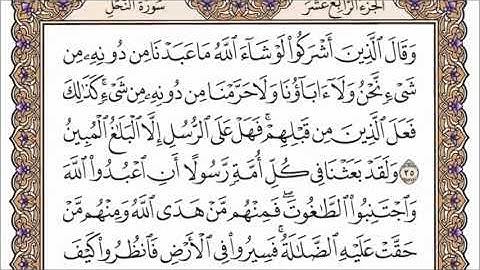 سُورَةُ النَّحْلِ الجُزْءُ الرَّابِعُ عَشَرَ
وَقَالَ ٱلَّذِينَ أَشْرَكُوا۟ لَوْ شَآءَ ٱللَّهُ مَا عَبَدْنَا مِن دُونِهِۦ مِن
شَىْءٍ نَّحْنُ وَلَآ ءَابَآؤُنَا وَلَا حَرَّمْنَا مِن دُونِهِۦ مِن شَىْءٍ ۚ كَذَٰلِكَ
فَعَلَ ٱلَّذِينَ مِن قَبْلِهِمْ ۚ فَهَلْ عَلَى ٱلرُّسُلِ إِلَّا ٱلْبَلَٰغُ ٱلْمُبِينُ
٣٥ وَلَقَدْ بَعَثْنَا فِى كُلِّ أُمَّةٍ رَّسُولًا أَنِ ٱعْبُدُوا۟ ٱللَّهَ
وَٱجْتَنِبُوا۟ ٱلطَّٰغُوتَ ۖ فَمِنْهُم مَّنْ هَدَى ٱللَّهُ وَمِنْهُم مَّنْ
حَقَّتْ عَلَيْهِ ٱلضَّلَٰلَةُ ۚ فَسِيرُوا۟ فِى ٱلْأَرْضِ فَٱنظُرُوا۟ كَيْفَ